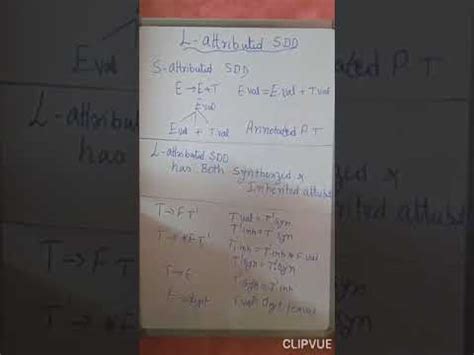 L-attributed SDD
S-attributed SDD
E → E+T E val = E val + T val
E val
E val + T val Annotated P T
L-attributed SDD
has Both Synthesized &
Inherited
T → F T' T val = T' syn
T' inh =
T' → *F T' T' inh = T' inh * F val
T' syn = T' syn
T' syn = T' inh
CLIPVUE